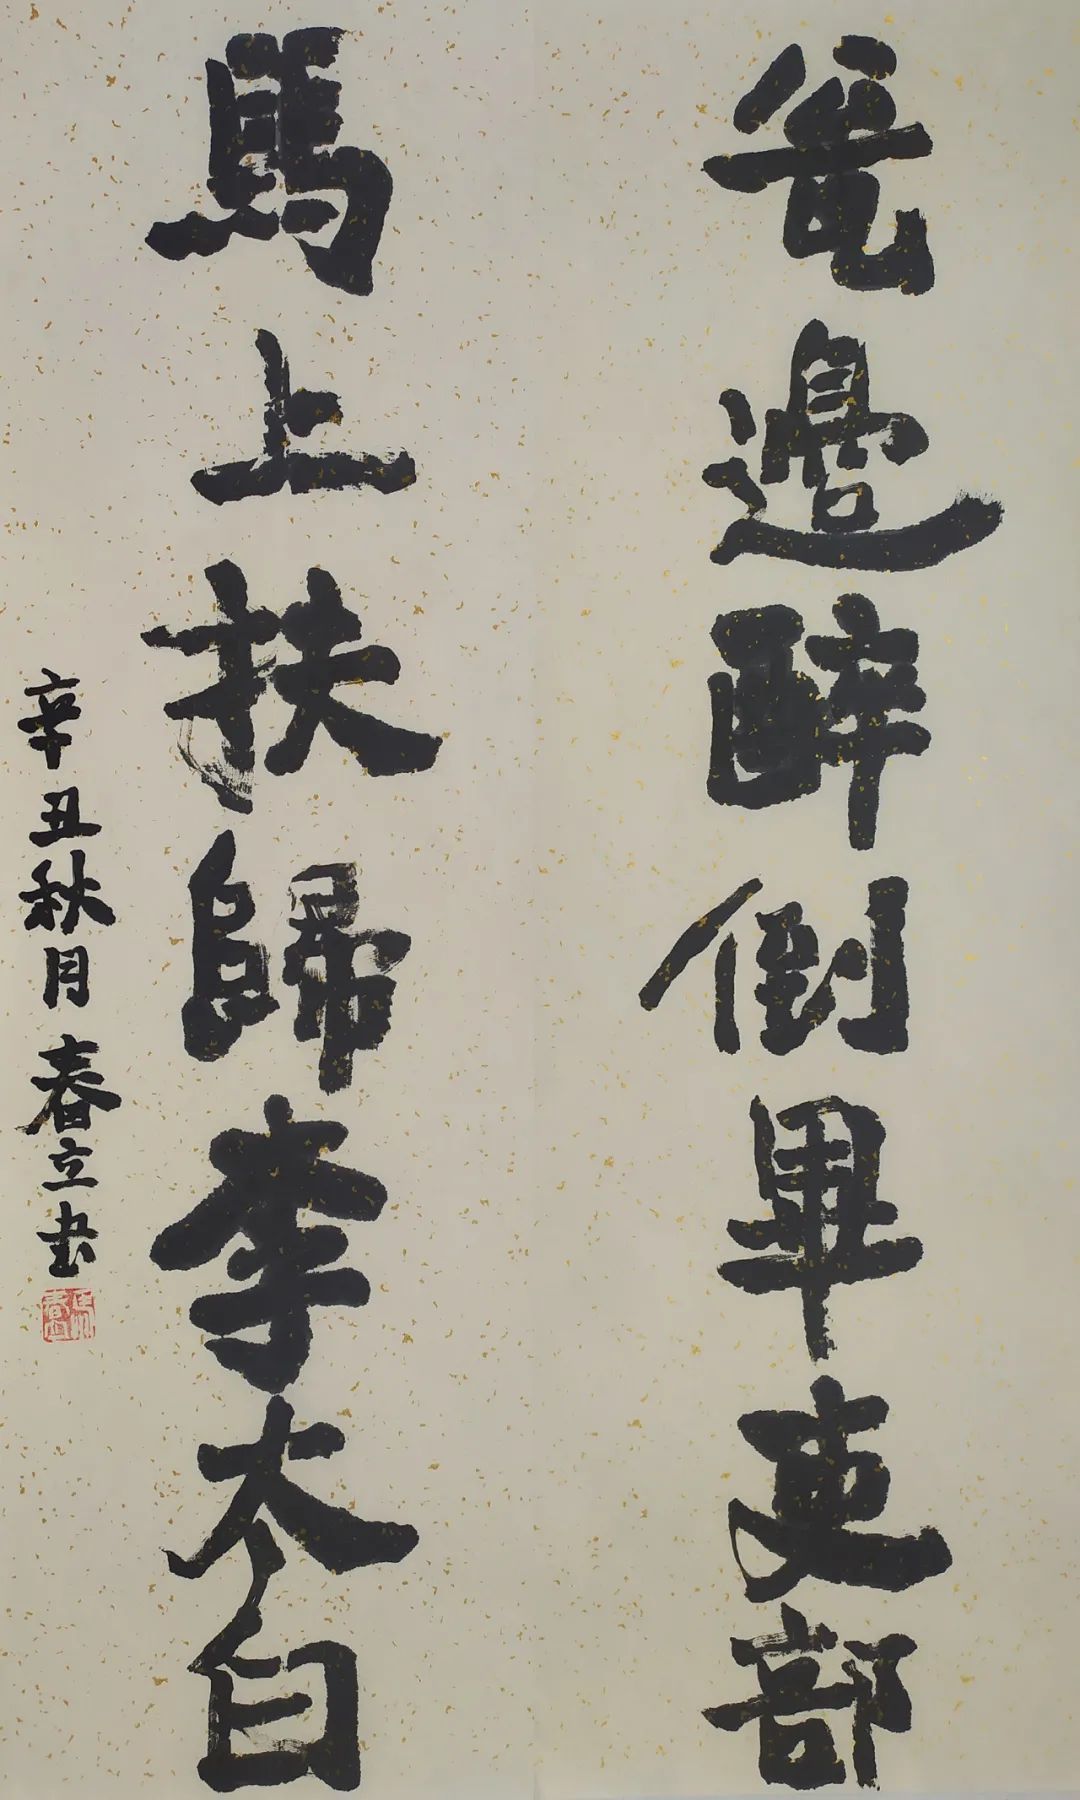 瓮邊醉倒畢吏部
馬上扶歸李太白
辛丑秋月春立书